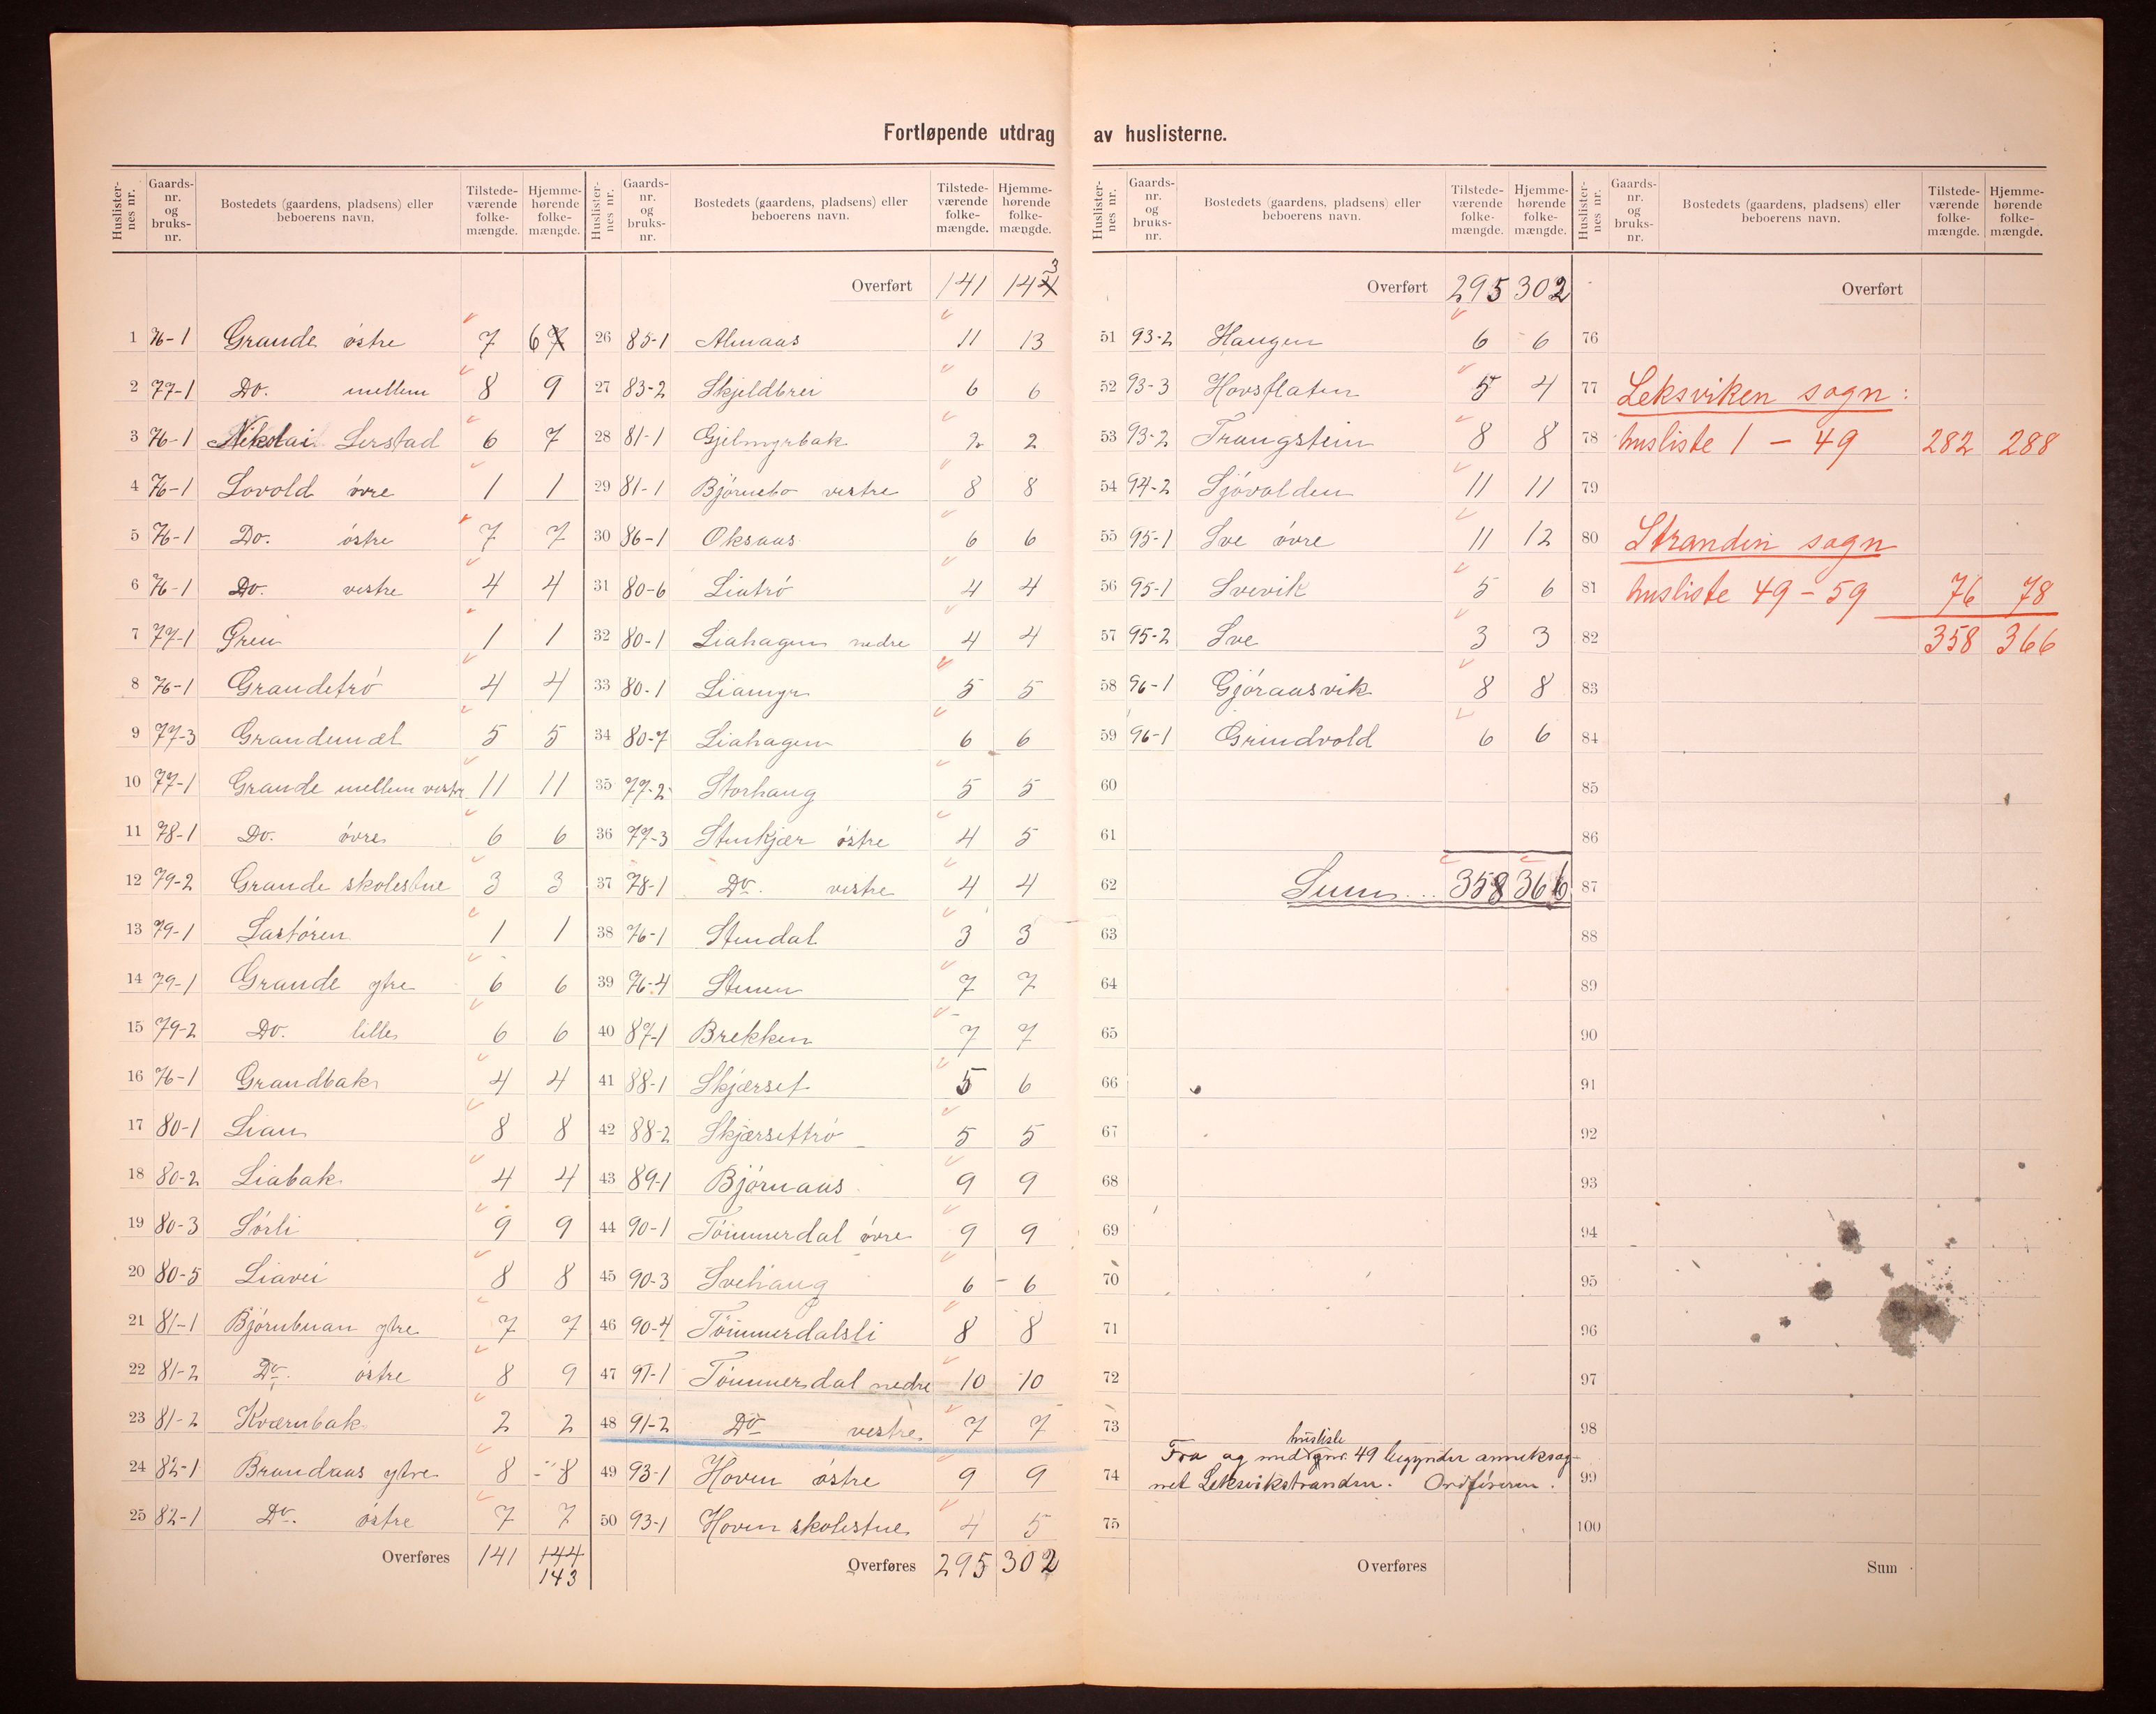 Fortløpende utdrag av huslisterne.
Huslisternes nr. Gaards-nr. og bruks-nr. Bostedets (gaardens, pladsens) eller beboerens navn. Tilstedeværende folkemængde. Hjemmehørende folkemængde.
1 76-1 Grande östre 7 6 7
2 77-1 Do. mellem 8 9
3 76-1 Nikolai Lerstad 6 7
4 76-1 Sovold övre 1 1
5 76-1 Do. östre 7 7
6 76-1 Do. vestre 4 4
7 77-1 Gren 1 1
8 76-1 Grandetrö 4 4
9 77-3 Grandemæl 5 5
10 77-1 Grande mellem vestr 11 11
11 78-1 Do. övre 6 6
12 79-2 Grande skolestue 3 3
13 79-1 Sastören 1 1
14 79-1 Grande ytre 6 6
15 79-2 Do. lille 6 6
16 76-1 Grandbak 4 4
17 80-1 Lian 8 8
18 80-2 Liabak 4 4
19 80-3 Sörli 9 9
20 80-5 Liavei 8 8
21 81-1 Björnbuan ytre 7 7
22 81-2 Do. östre 8 9
23 81-2 Kværnbak 2 2
24 82-1 Brandaas ytre 8 - 8
25 82-1 Do. östre 7 7
Overføres 141 144
143
Huslisternes nr. Gaards-nr. og bruks-nr. Bostedets (gaardens, pladsens) eller beboerens navn. Tilstedeværende folkemængde. Hjemmehørende folkemængde.
Overført 141 144 3
26 85-1 Almaas 11 13
27 83-2 Skjeldbrei 6 6
28 81-1 Gjelmyrbak 2 2
29 81-1 Björnebo vestre 8 8
30 86-1 Oksaas 6 6
31 80-6 Liatrö 4 4
32 80-1 Liahagen nedre 4 4
33 80-1 Liamyr 5 5
34 80-7 Liahagen 6 6
35 77-2 Storhaug 5 5
36 77-3 Stenkjær östre 4 5
37 78-1 Do. vestre 4 4
38 76-1 Stendal 3 3
39 76-4 Stenen 7 7
40 87-1 Brekken 7 7
41 88-1 Skjærset 5 6
42 88-2 Skjærsettrö 5 5
43 89-1 Björnaas 9 9
44 90-1 Tömmerdal övre 9 9
45 90-3 Svehaug 6 - 6
46 90-4 Tömmerdalsli 8 8
47 91-1 Tömmerdal nedre 10 10
48 91-2 Do vestre 7 7
49 93-1 Hoven östre 9 9
50 93-1 Hoven skolestue 4 5
Overføres 295 302
Huslisternes nr. Gaards-nr. og bruks-nr. Bostedets (gaardens, pladsens) eller beboerens navn. Tilstedeværende folkemængde. Hjemmehørende folkemængde.
Overført 295 302
51 93-2 Haugen 6 - 6
52 93-3 Hovsflaten 5 4
53 93-2 Trangstein 8 8
54 94-2 Sjövolden 11 11
55 95-1 Sve övre 11 12
56 95-1 Svevik 5 6
57 95-2 Sve 3 3
58 96-1 Gjöraasvik 8 8
59 96-1 Grindvold 6 6
60
61
62 Sum 358 366
63
64
65
66
67
68
69
70
71
72
73 husliste
74 Fra og med gnr. 49 begynder annekssog-
net Leksvikstranden. Ordföreren.
75
Overføres
Huslisternes nr. Gaards-nr. og bruks-nr. Bostedets (gaardens, pladsens) eller beboerens navn. Tilstedeværende folkemængde. Hjemmehørende folkemængde.
Overført
76
77 Leksviken sogn:
78 husliste 1 - 49 282 288
79
80 Stranden sogn
81 husliste 49 - 59 76 78
82 358 366
83
84
85
86
87
88
89
90
91
92
93
94
95
96
97
98
99
100
Sum